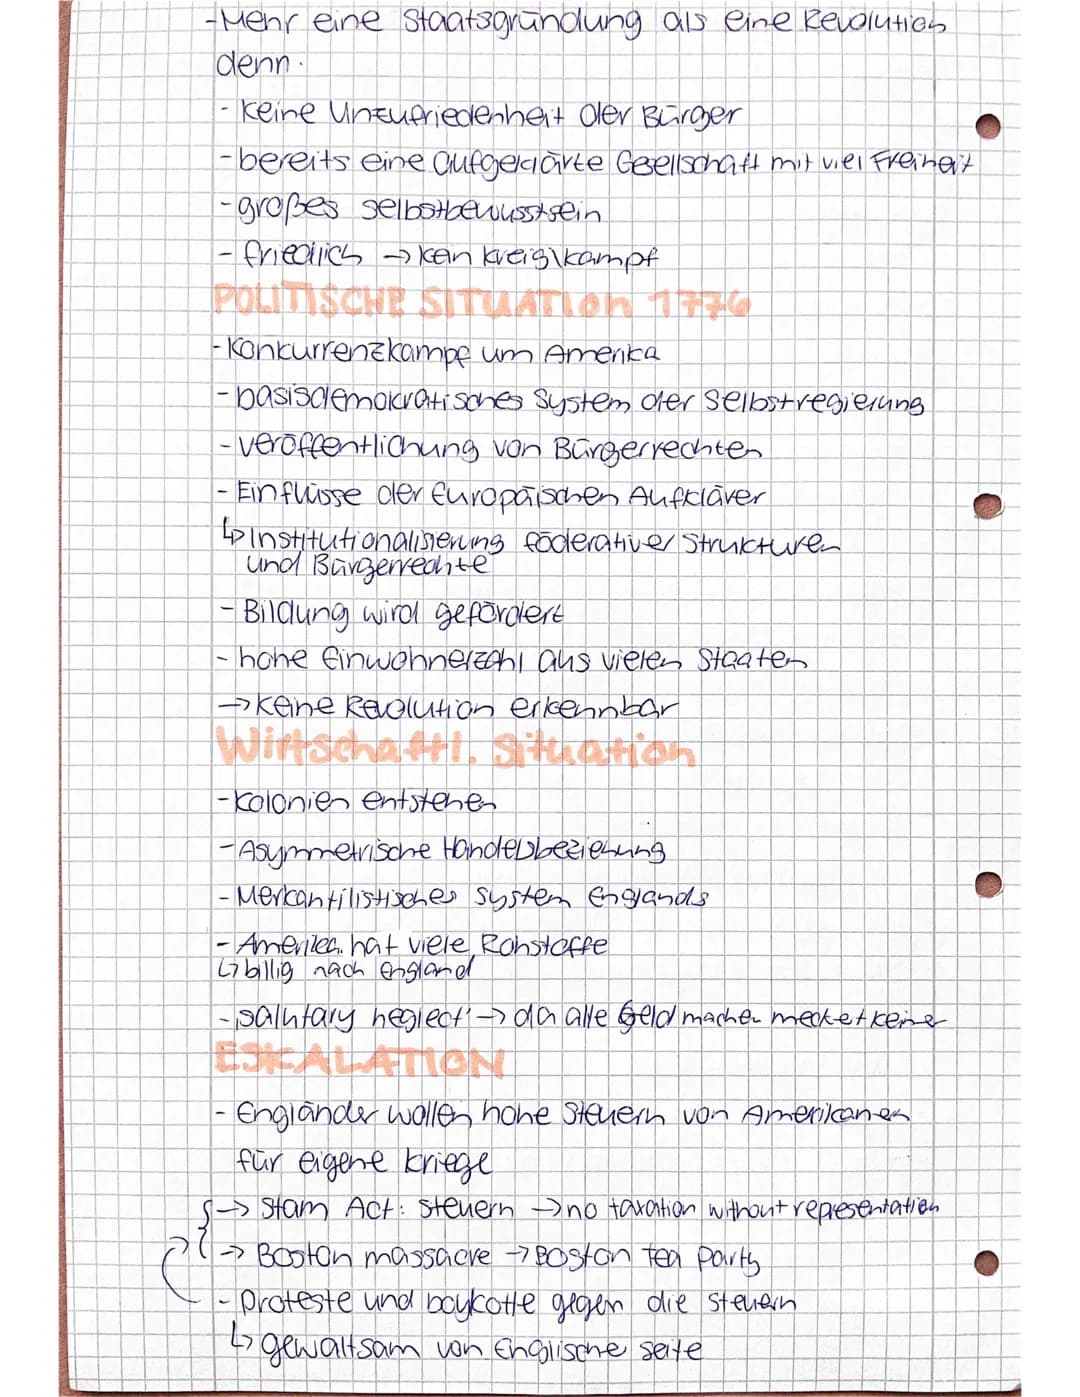 -Mehr eine Staatsgründung als eine Revolution
denn.
- keine Unzufriedenheit der Bürger
- bereits eine aufgeklärte Gesellschaft mit viel Freiheit
- großes selbstbewusstsein
- friedlich → kein kreig\kampf
POLITISCHE SITUATION 1776
- Konkurrenzkampf um Amerika
- basisdemokratisches System der Selbstregierung
- veröffentlichung von Bürgerrechten
- Einflüsse der Europäischen Aufklärer
↳ Institutionalisierung föderativer Strukturen
und Bürgerrechte
- Bildung wird gefördert
- hohe Einwohnerzahl aus vielen Staaten
→ keine Revolution erkennbar
Wirtschaftl. Situation
- Kolonien entstehen
- Asymmetrische Handelsbeziehung
- Merkantilistisches System Englands
- Amerika hat viele Rohstoffe
↳ billig nach England
- 'salutary neglect' → da alle Geld machen mecket keiner
ESKALATION
- Engländer wollen hohe Steuern von Amerikanern
für eigene kriege
→ Stam Act: steuern → no taxation without representation
→ Boston massacre → Boston tea party
- Proteste und boykotte gegen die steuern
↳ gewaltsam von Englische seite